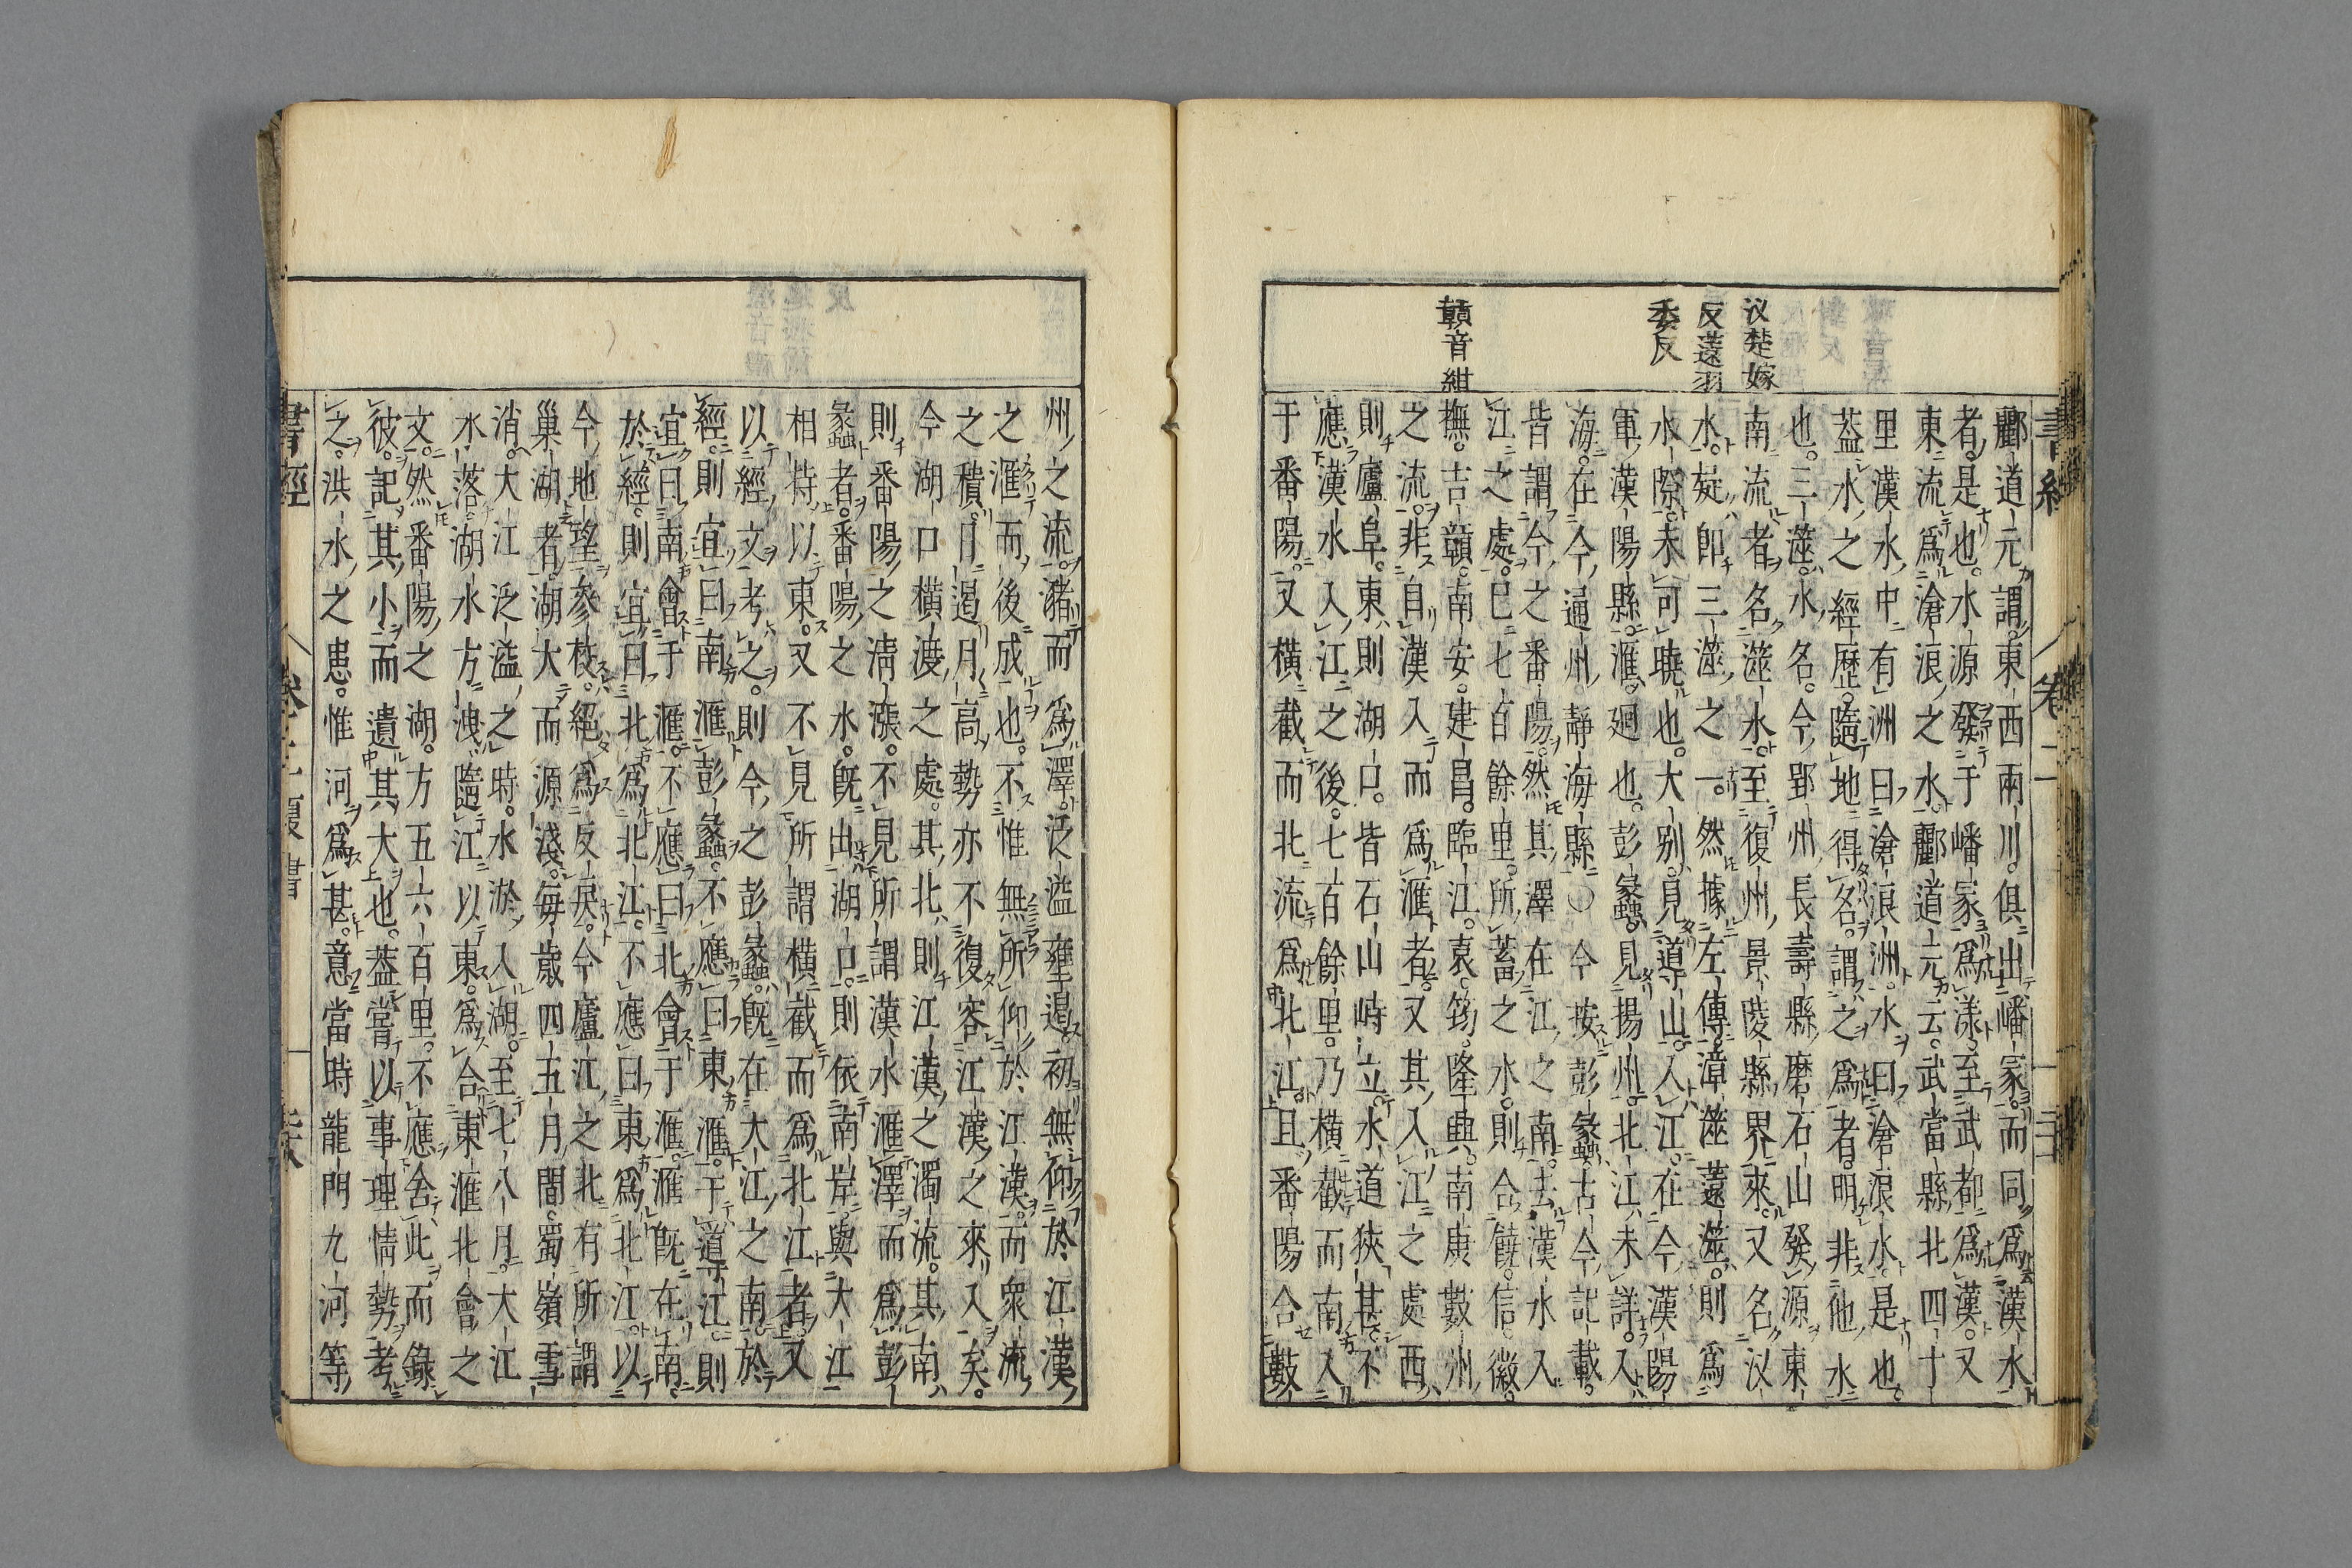 汊楚嫁
反薳羽
委反
贛音紺
酈道元謂東西兩川俱出嶓冢而同爲漢水
者是也水源發于嶓冢爲漾至武都爲漢又
東流爲滄浪之水酈道元云武當縣北四十
里漢水中有洲曰滄浪洲水曰滄浪水是也
葢水之經歷隨地得名謂之爲者明非他水
也三澨水名今郢州長壽縣磨石山發源東
南流者名澨水至復州景陵縣界來又名汊
水疑即三澨之一然據左傳漳澨薳澨則爲
水際未可曉也大別見導山入江在今漢陽
軍漢陽縣滙廻也彭蠡見揚州北江未詳入
海在今通州靜海縣○今按彭蠡古今記載
皆謂今之番陽然其澤在江之南去漢水入
江之處已七百餘里所蓄之水則合饒信徽
撫吉贛南安建昌臨江袁筠隆興南康數州
之流非自漢入而爲滙者又其入江之處西
則廬阜東則湖口皆石山峙立水道狹甚不
應漢水入江之後七百餘里乃橫截而南入
于番陽又橫截而北流爲北江且番陽合數
州之流潴而爲澤泛溢壅遏初無仰於江漢
之滙而後成也不惟無所仰於江漢而衆流
之積日遏月高勢亦不復容江漢之來入矣
今湖口橫渡之處其北則江漢之濁流其南
則番陽之淸漲不見所謂漢水滙澤而爲彭
蠡者番陽之水旣出湖口則依南岸與大江
相持以東又不見所謂橫截而爲北江者又
以經文考之則今之彭蠡旣在大江之南於
經則宜曰南滙彭蠡不應曰東滙于導江則
宜曰南會于滙不應曰北會于滙滙旣在南
於經則宜曰北爲北江不應曰東爲北江以
今地望參校絕爲反戾今廬江之北有所謂
巢湖者湖大而源淺每歲四五月間蜀嶺雪
消大江泛溢之時水淤入湖至七八月大江
水落湖水方洩隨江以東爲合東滙北會之
文然番陽之湖方五六百里不應舍此而錄
彼記其小而遺其大也葢嘗以事理情勢考
之洪水之患惟河爲甚意當時龍門九河等
書經
夏書